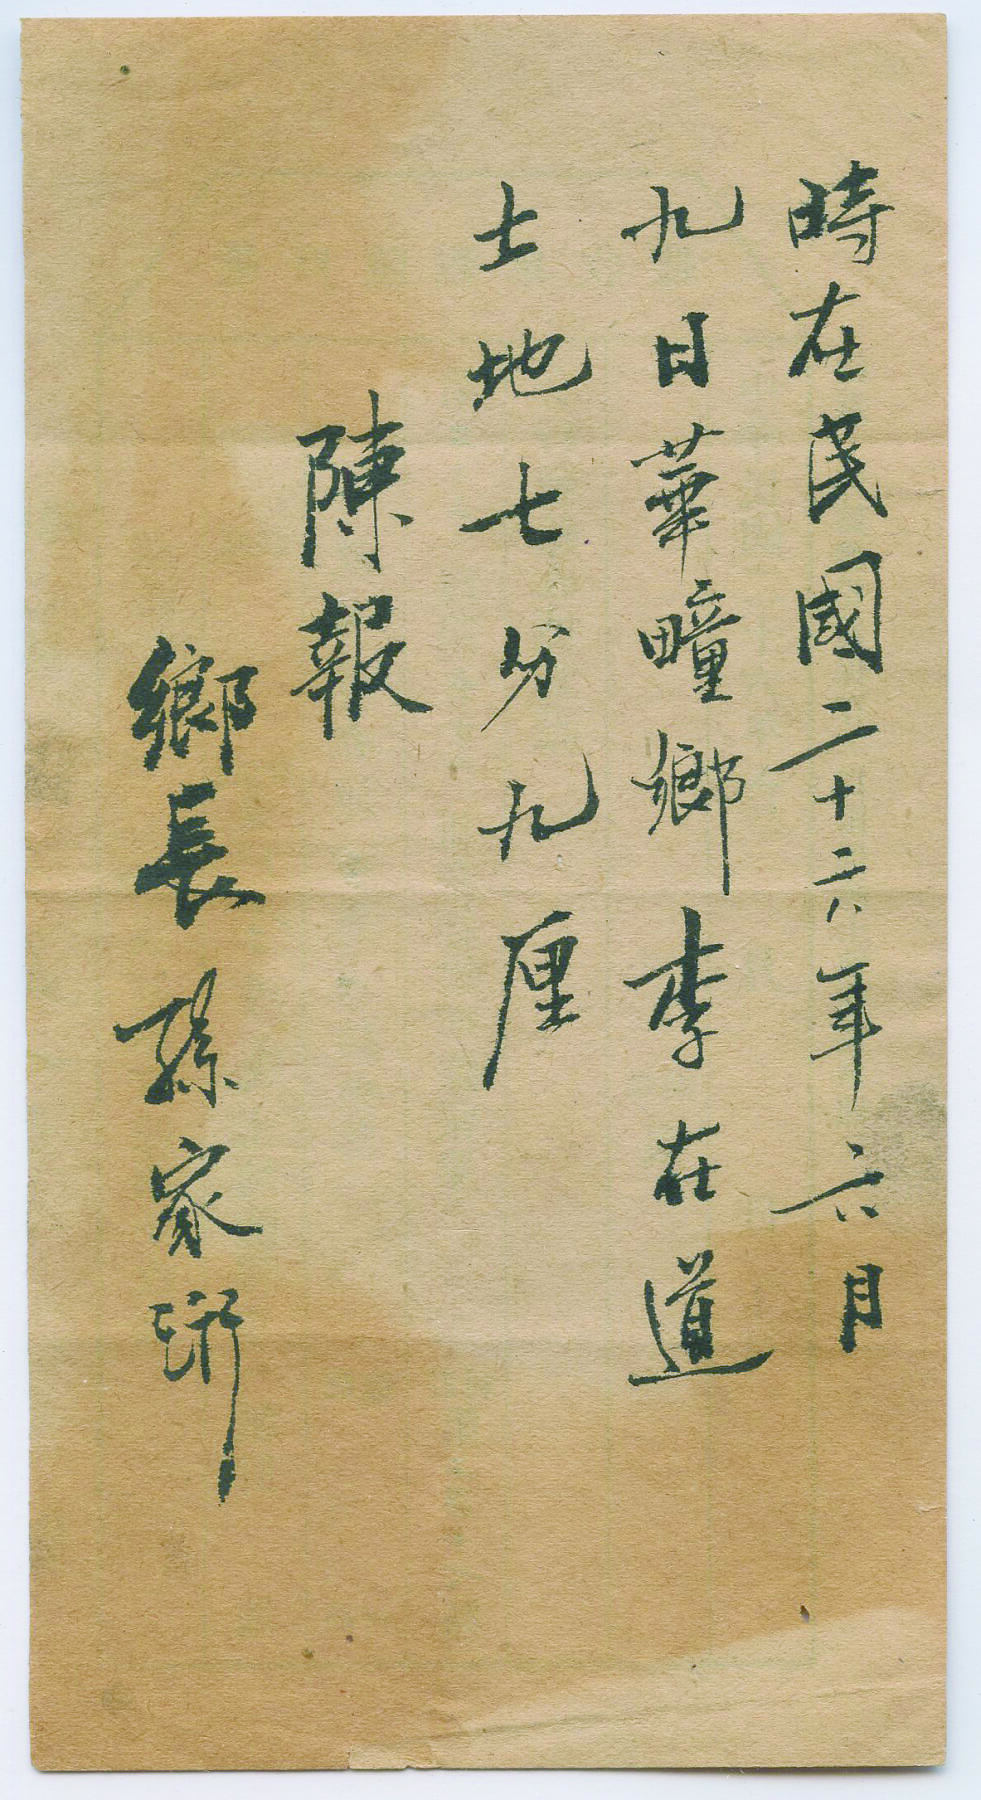 時在民國二十六年六月
九日華疃鄉李在道
土地七分九厘
陳報
鄉長孫家珩